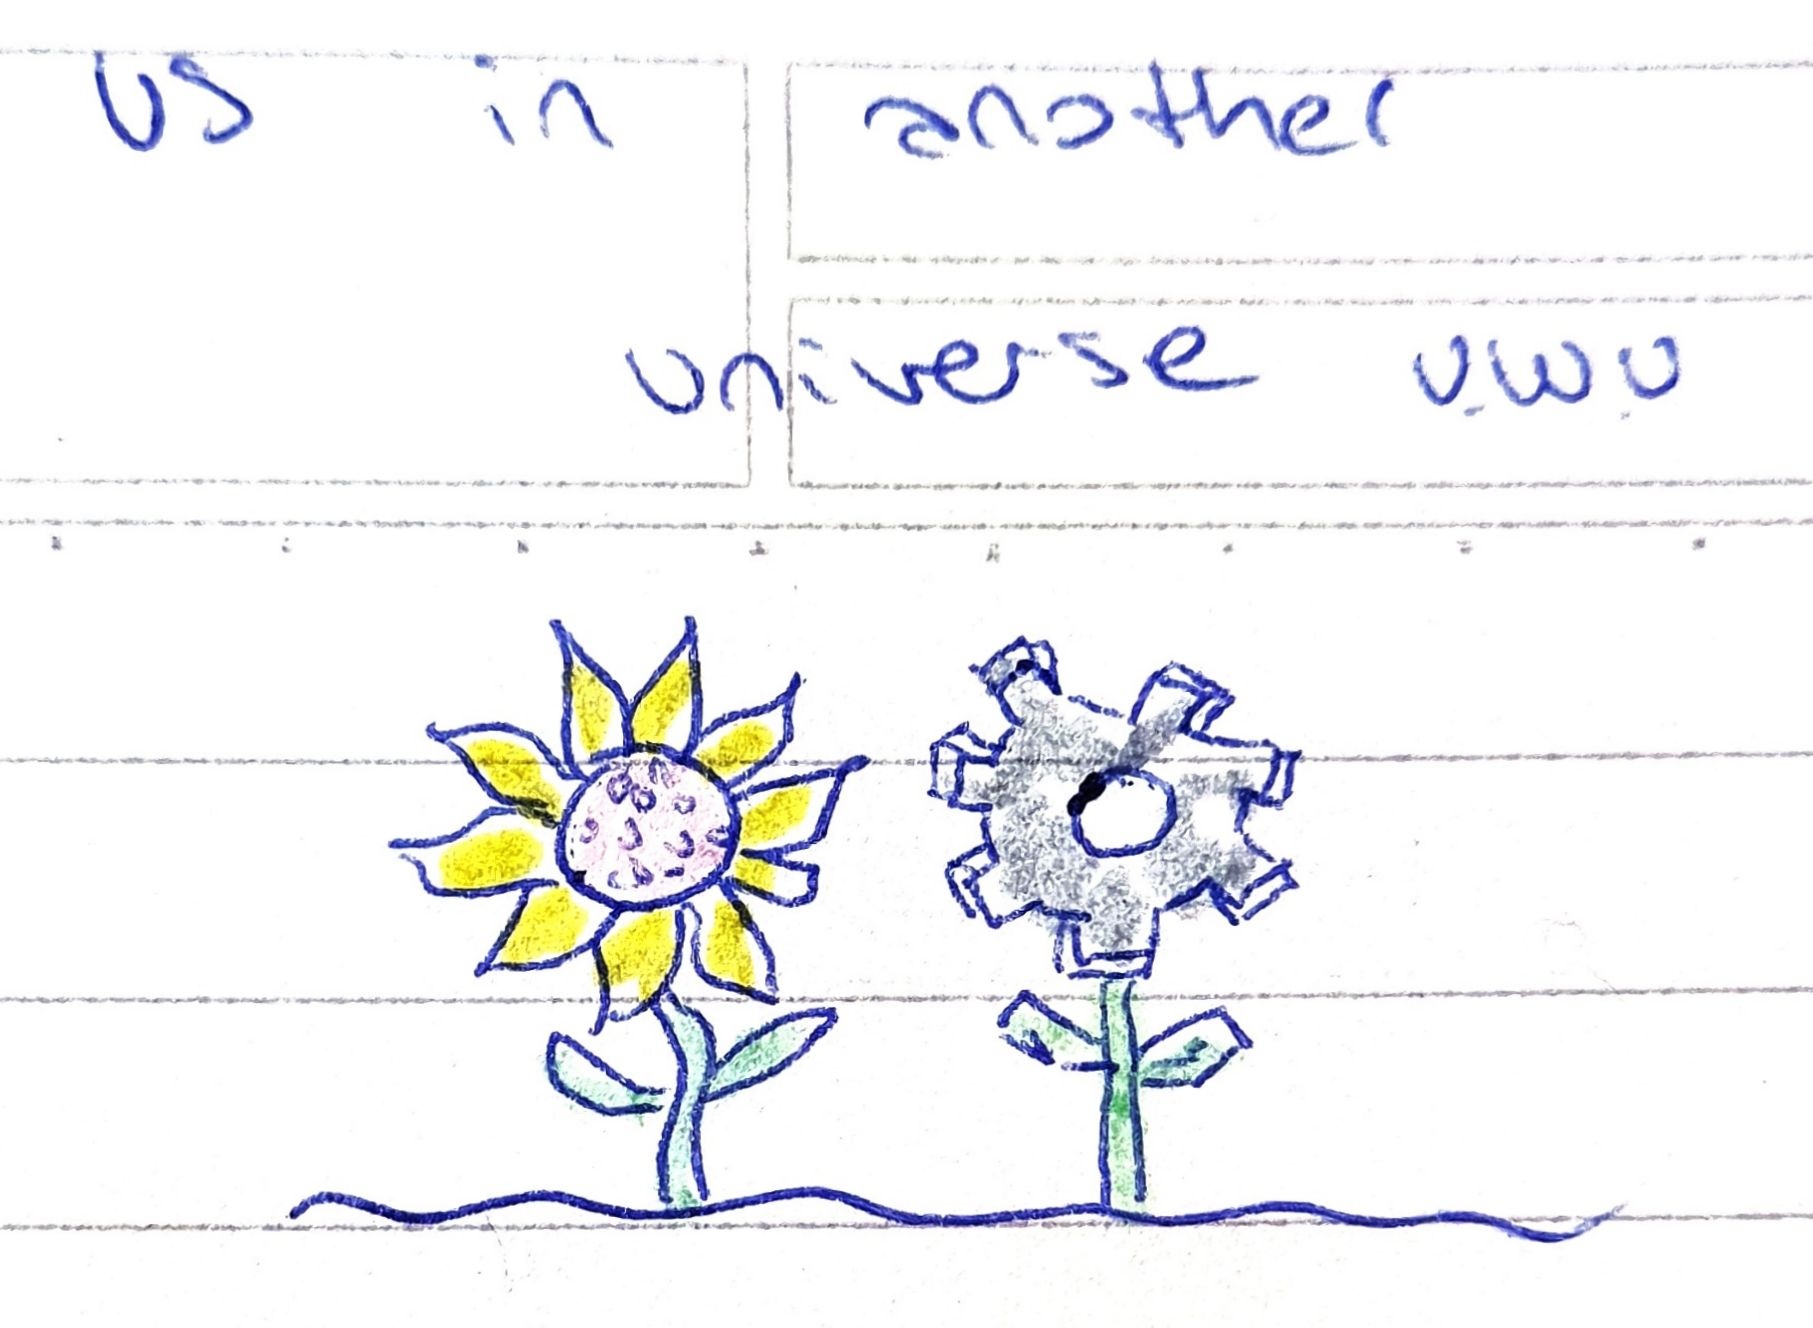 us in another
universe u.w.u